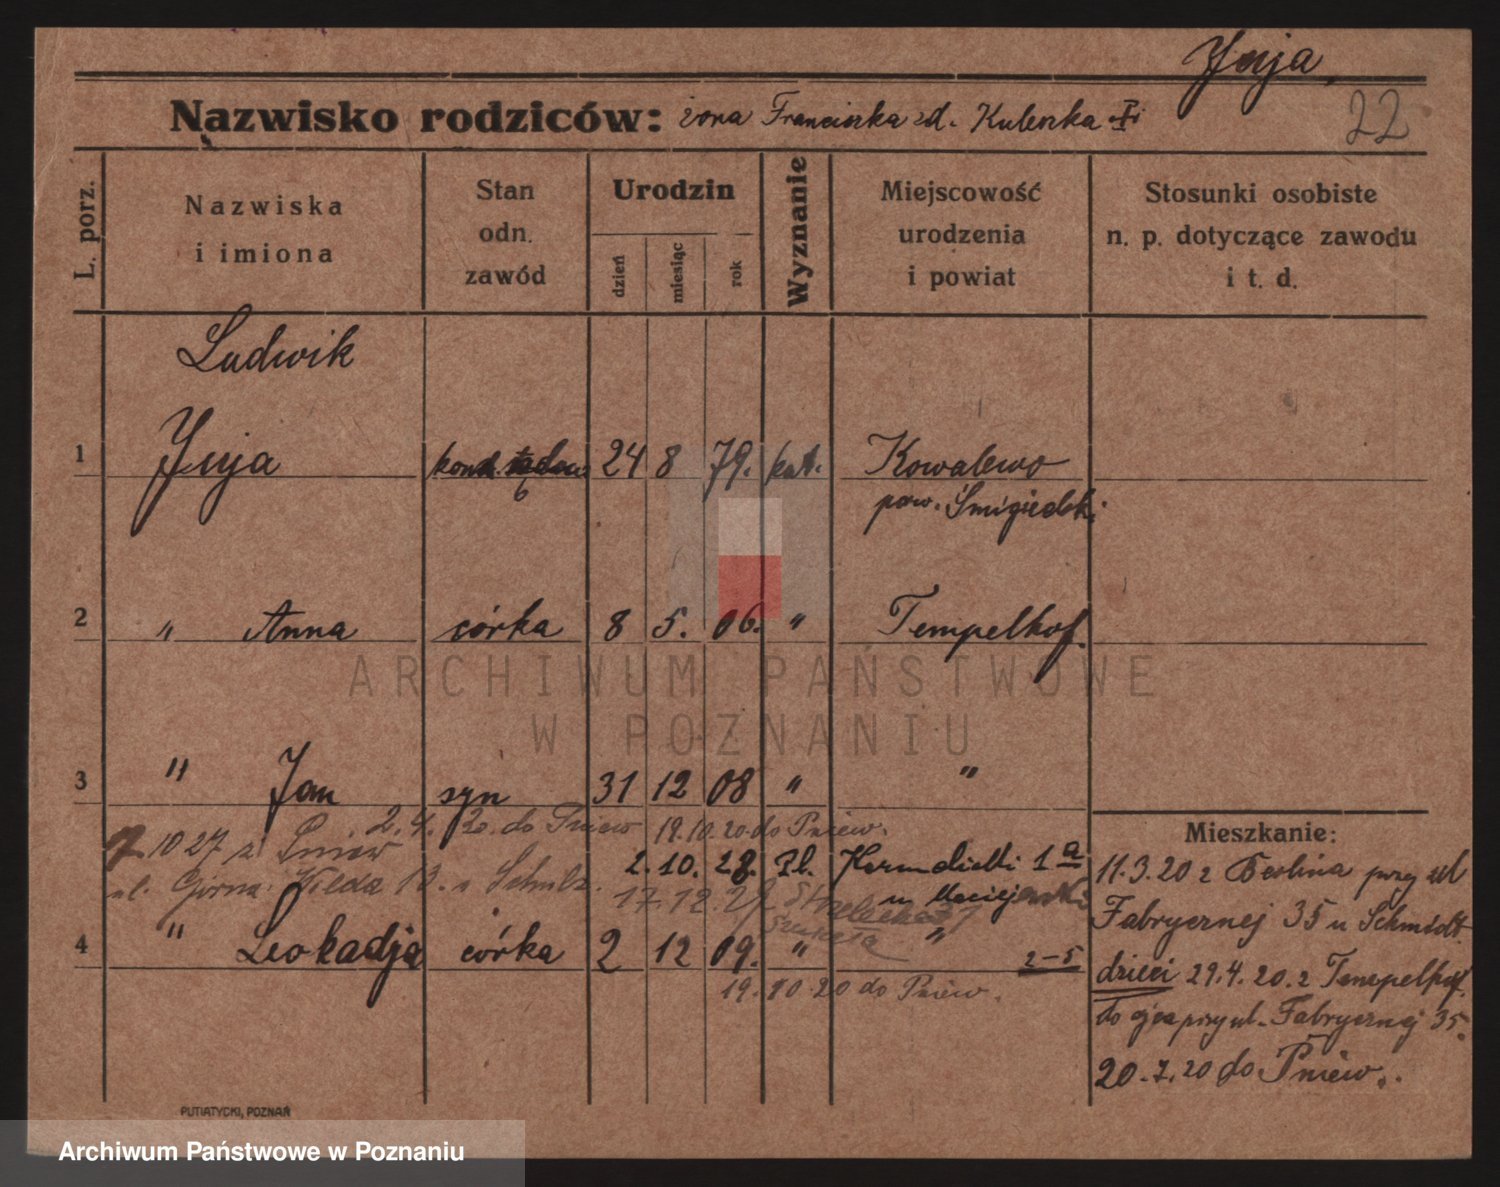 Juja
Nazwisko rodziców: żona Franciszka zd. Kuleszka
22
L. porz.
Nazwiska
i imiona
Stan
odn.
zawód
Urodzin
dzień
miesiąc
rok
Wyznanie
Miejscowość
urodzenia
i powiat
Stosunki osobiste
n. p. dotyczące zawodu
i t. d.
Ludwik
1 Juja 24 8 79. kat. Kowalewo
pow. Śmigielski
2 " Anna córka 8 5. 06. " Tempelhof.
3 " Jan syn 31 12 08 " "
2.4. 20. do Pniew 19.10.20 do Pniew.
7 10 27 z Pniew
2.10.28. Pl. 1a
ul. Górna Wilda 13. u Schulz. 17.12.27 Strzelecka 37
4 " Leokadja córka 2 12 09. " "
2-5
19.10.20 do Pniew.
Mieszkanie:
11.3.20 z Berlina przy ul
Fabrycznej 35 u Schmidt.
dzieci 29.4.20. z Tempelhof.
do ojca przy ul. Fabrycznej 35.
20.7.20 do Pniew.
PUTIATYCKI, POZNAŃ
ARCHIWUM PAŃSTWOWE
W POZNANIU
Archiwum Państwowe w Poznaniu